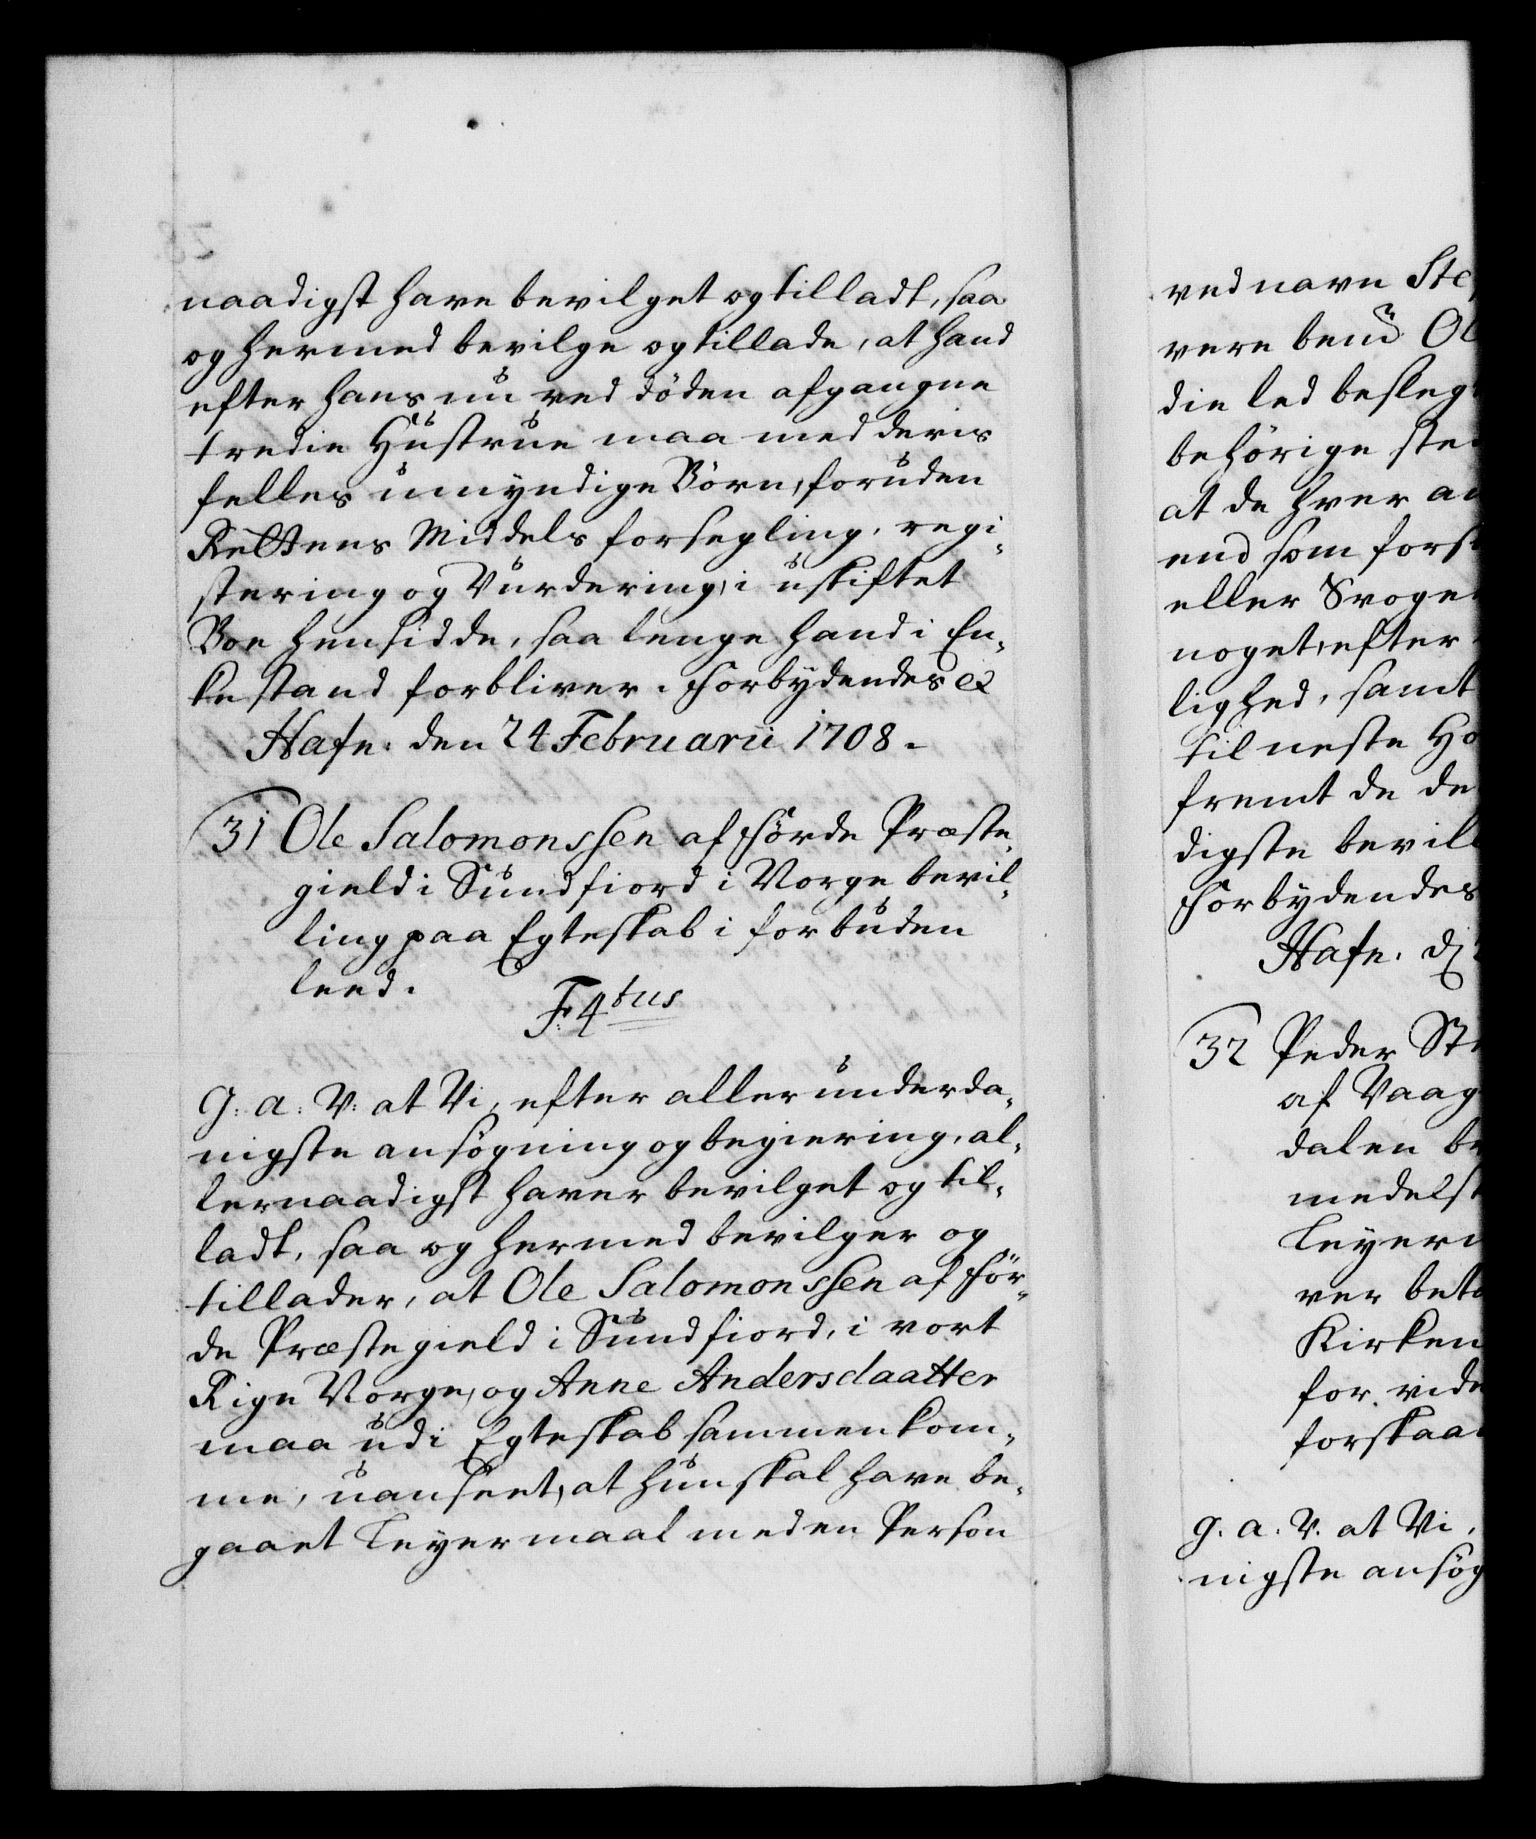 naadigst have bevilget og tilladt, saa
og hermed bevilge og tillade, at hand
efter hans nu ved döden afgangne
tredie Hustrue maa med deris
felles umyndige Börn, foruden
Rettens Middels forsegling, regi-
stering og Vurdering, i uskiftet
Boe hensidde, saa lenge hand i En-
kestand forbliver. Forbydendes etc
Hafn: den 24 Februarii 1708.
31 Ole Salomonssen af Förde Præste-
gield i Sundfiord i Norge bevil-
ling paa Egteskab i forbuden
leed.
F: 4tus
G: a: V: at Vi, efter allerunderda-
nigste ansögning og begiering, al-
lernaadigst haver bevilget og til-
ladt, saa og hermed bevilger og
tillader, at Ole Salomonssen af För-
de Præstegield i Sundfiord, i vort
Rige Norge, og Anne Andersdaatter
maa udi Egteskab sammenkom-
me, uanseet, at hun skal have be-
gaaet Leyermaal med en Person
ved navn Ste
vere bem Ol
die led besleg
behörige ste
at de hver an
end som fors
eller Svoge
noget, efter
lighed, samt
til neste Ho
fremt de de
digste bevil
Forbydendes
Hafn. d
32 Peder St
af Vaag
dalen be
medelst
Leyer
ver bet
Kirken
for vid
forskaa
G. a. V. at Vi,
nigste ansög